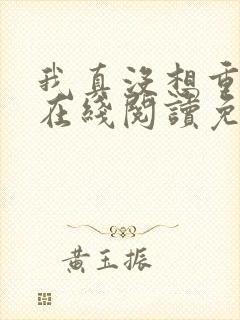 我真没想重
在线阅读免
黄玉振